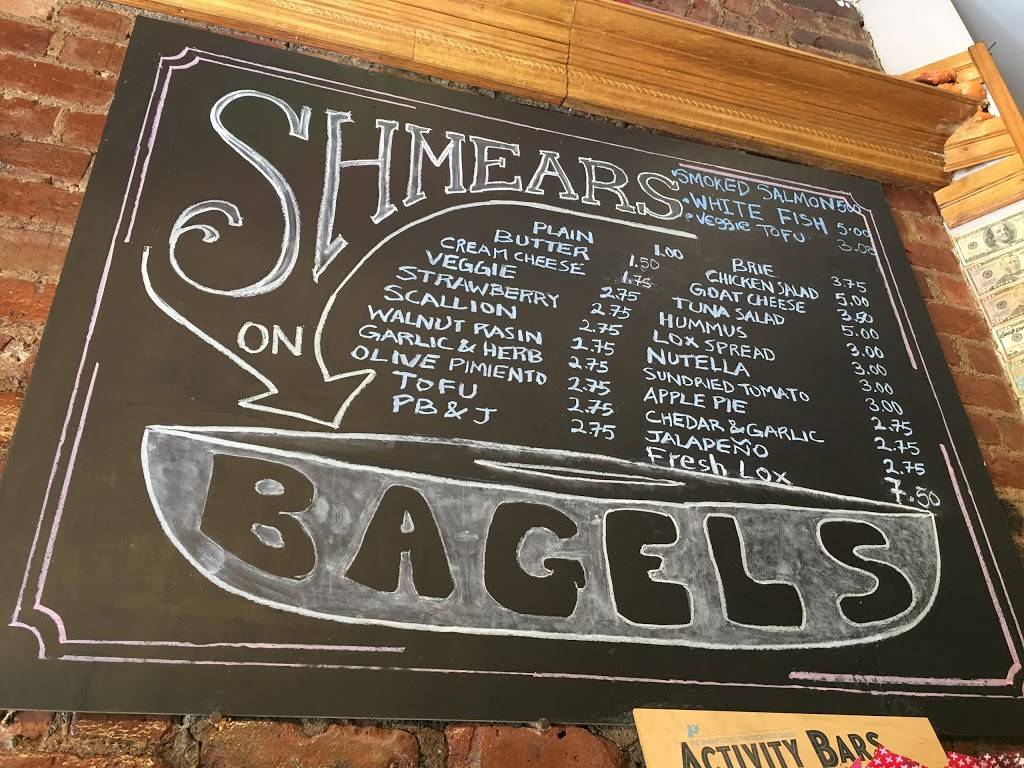 SHMEARS
ON
BAGELS
• SMOKED SALMON 5.00
• WHITE FISH 5.00
• Veggie TOFU 3.00
PLAIN 1.00
BUTTER 1.50
CREAM CHEESE 1.75
VEGGIE 2.75
STRAWBERRY 2.75
SCALLION 2.75
WALNUT RASIN 2.75
GARLIC & HERB 2.75
OLIVE PIMIENTO 2.75
TOFU 2.75
PB & J 2.75
BRIE 3.75
CHICKEN SALAD 5.00
GOAT CHEESE 3.50
TUNA SALAD 5.00
HUMMUS 3.00
LOX SPREAD 3.00
NUTELLA 3.00
SUNDRIED TOMATO 3.00
APPLE PIE 2.75
CHEDAR & GARLIC 2.75
JALAPEÑO 2.75
Fresh Lox 7.50
ACTIVITY BARS